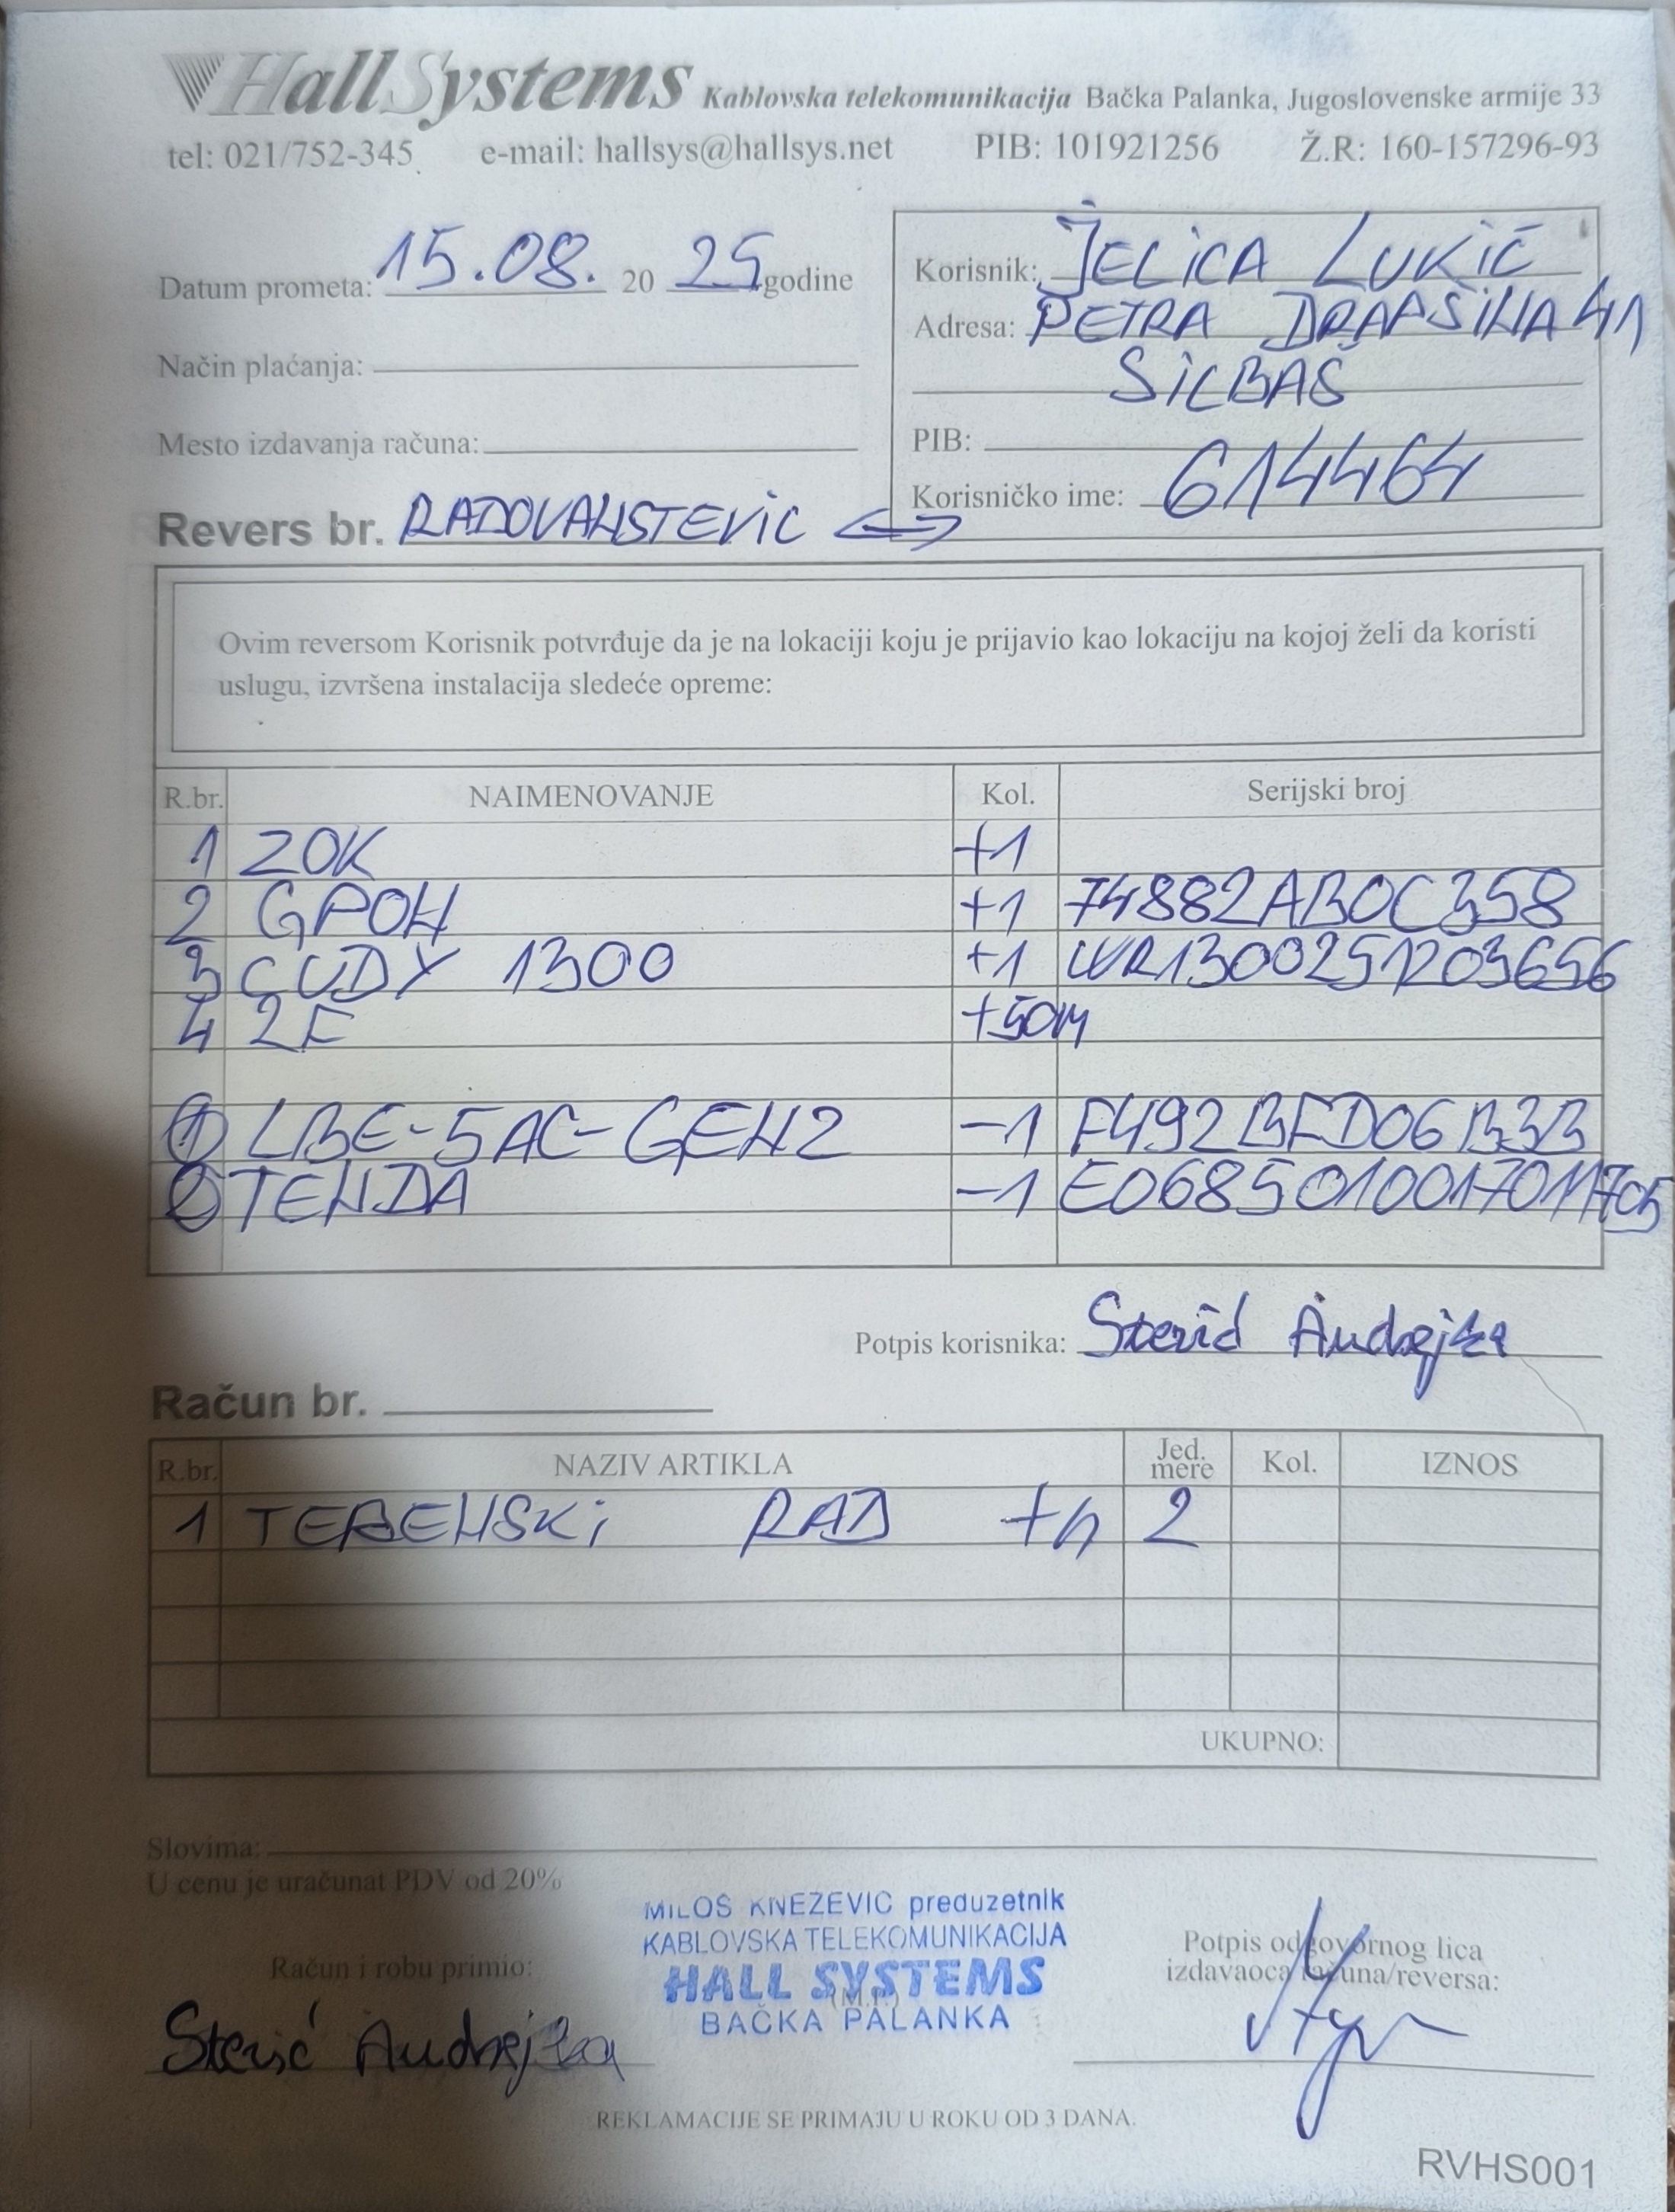 Hall Systems Kablovska telekomunikacija Bačka Palanka, Jugoslovenske armije 33
tel: 021/752-345 e-mail: hallsys@hallsys.net PIB: 101921256 Ž.R: 160-157296-93
Datum prometa: 15.08. 20 25 godine
Način plaćanja:
Mesto izdavanja računa:
Korisnik: JELICA LUKIĆ
Adresa: PETRA DRAPŠINA 41
SILBAŠ
PIB:
Korisničko ime: 614464
Revers br.
Ovim reversom Korisnik potvrđuje da je na lokaciji koju je prijavio kao lokaciju na kojoj želi da koristi
uslugu, izvršena instalacija sledeće opreme:
R.br. NAIMENOVANJE Kol. Serijski broj
1 ZOK +1
2 GPON +1 74882AB0C358
3 CUDY 1300 +1 WR1300251203656
4 2F +50M
1 LBE-5AC-GEN2 -1 F492BFD06B3B
2 TENDA -1 E0685010017011705
Potpis korisnika: Andrejka
Račun br.
R.br. NAZIV ARTIKLA Jed. mere Kol. IZNOS
1 TERENSKI RAD +h 2
UKUPNO:
Slovima:
U cenu je uračunat PDV od 20%
MILOŠ KNEŽEVIĆ preduzetnik
KABLOVSKA TELEKOMUNIKACIJA
HALL SYSTEMS
(M.P.)
BAČKA PALANKA
Račun i robu primio:
Andrejka
Potpis odgovornog lica
izdavaoca računa/reversa:
REKLAMACIJE SE PRIMAJU U ROKU OD 3 DANA.
RVHS001